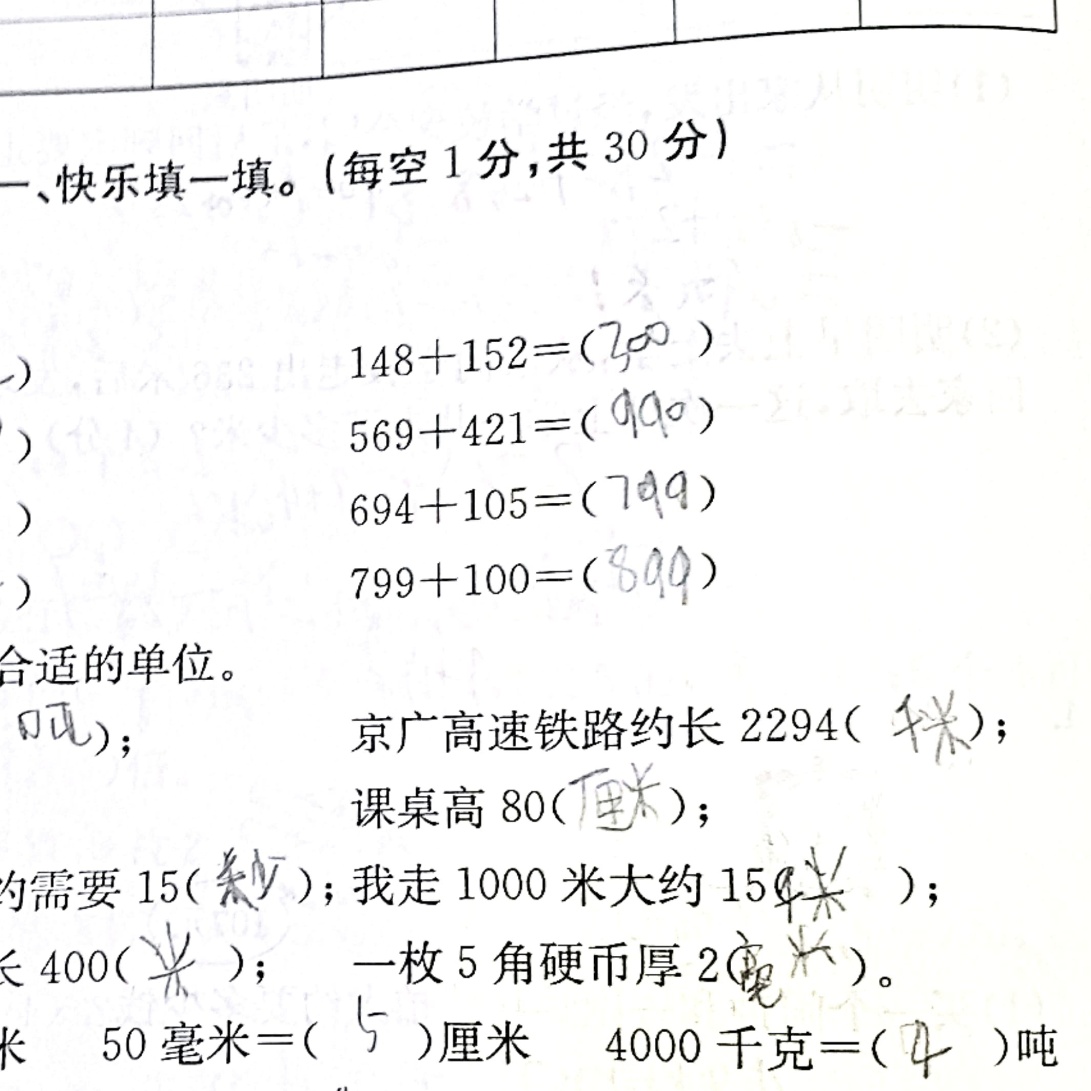 一、快乐填一填。(每空1分,共30分)
) 148+152=(300)
) 569+421=(990)
) 694+105=(799)
) 799+100=(899)
合适的单位。
吨); 京广高速铁路约长2294(千米);
课桌高80(厘米);
约需要15(秒); 我走1000米大约15(千米);
长400(米); 一枚5角硬币厚2(毫米)。
米 50毫米=(5)厘米 4000千克=(4)吨